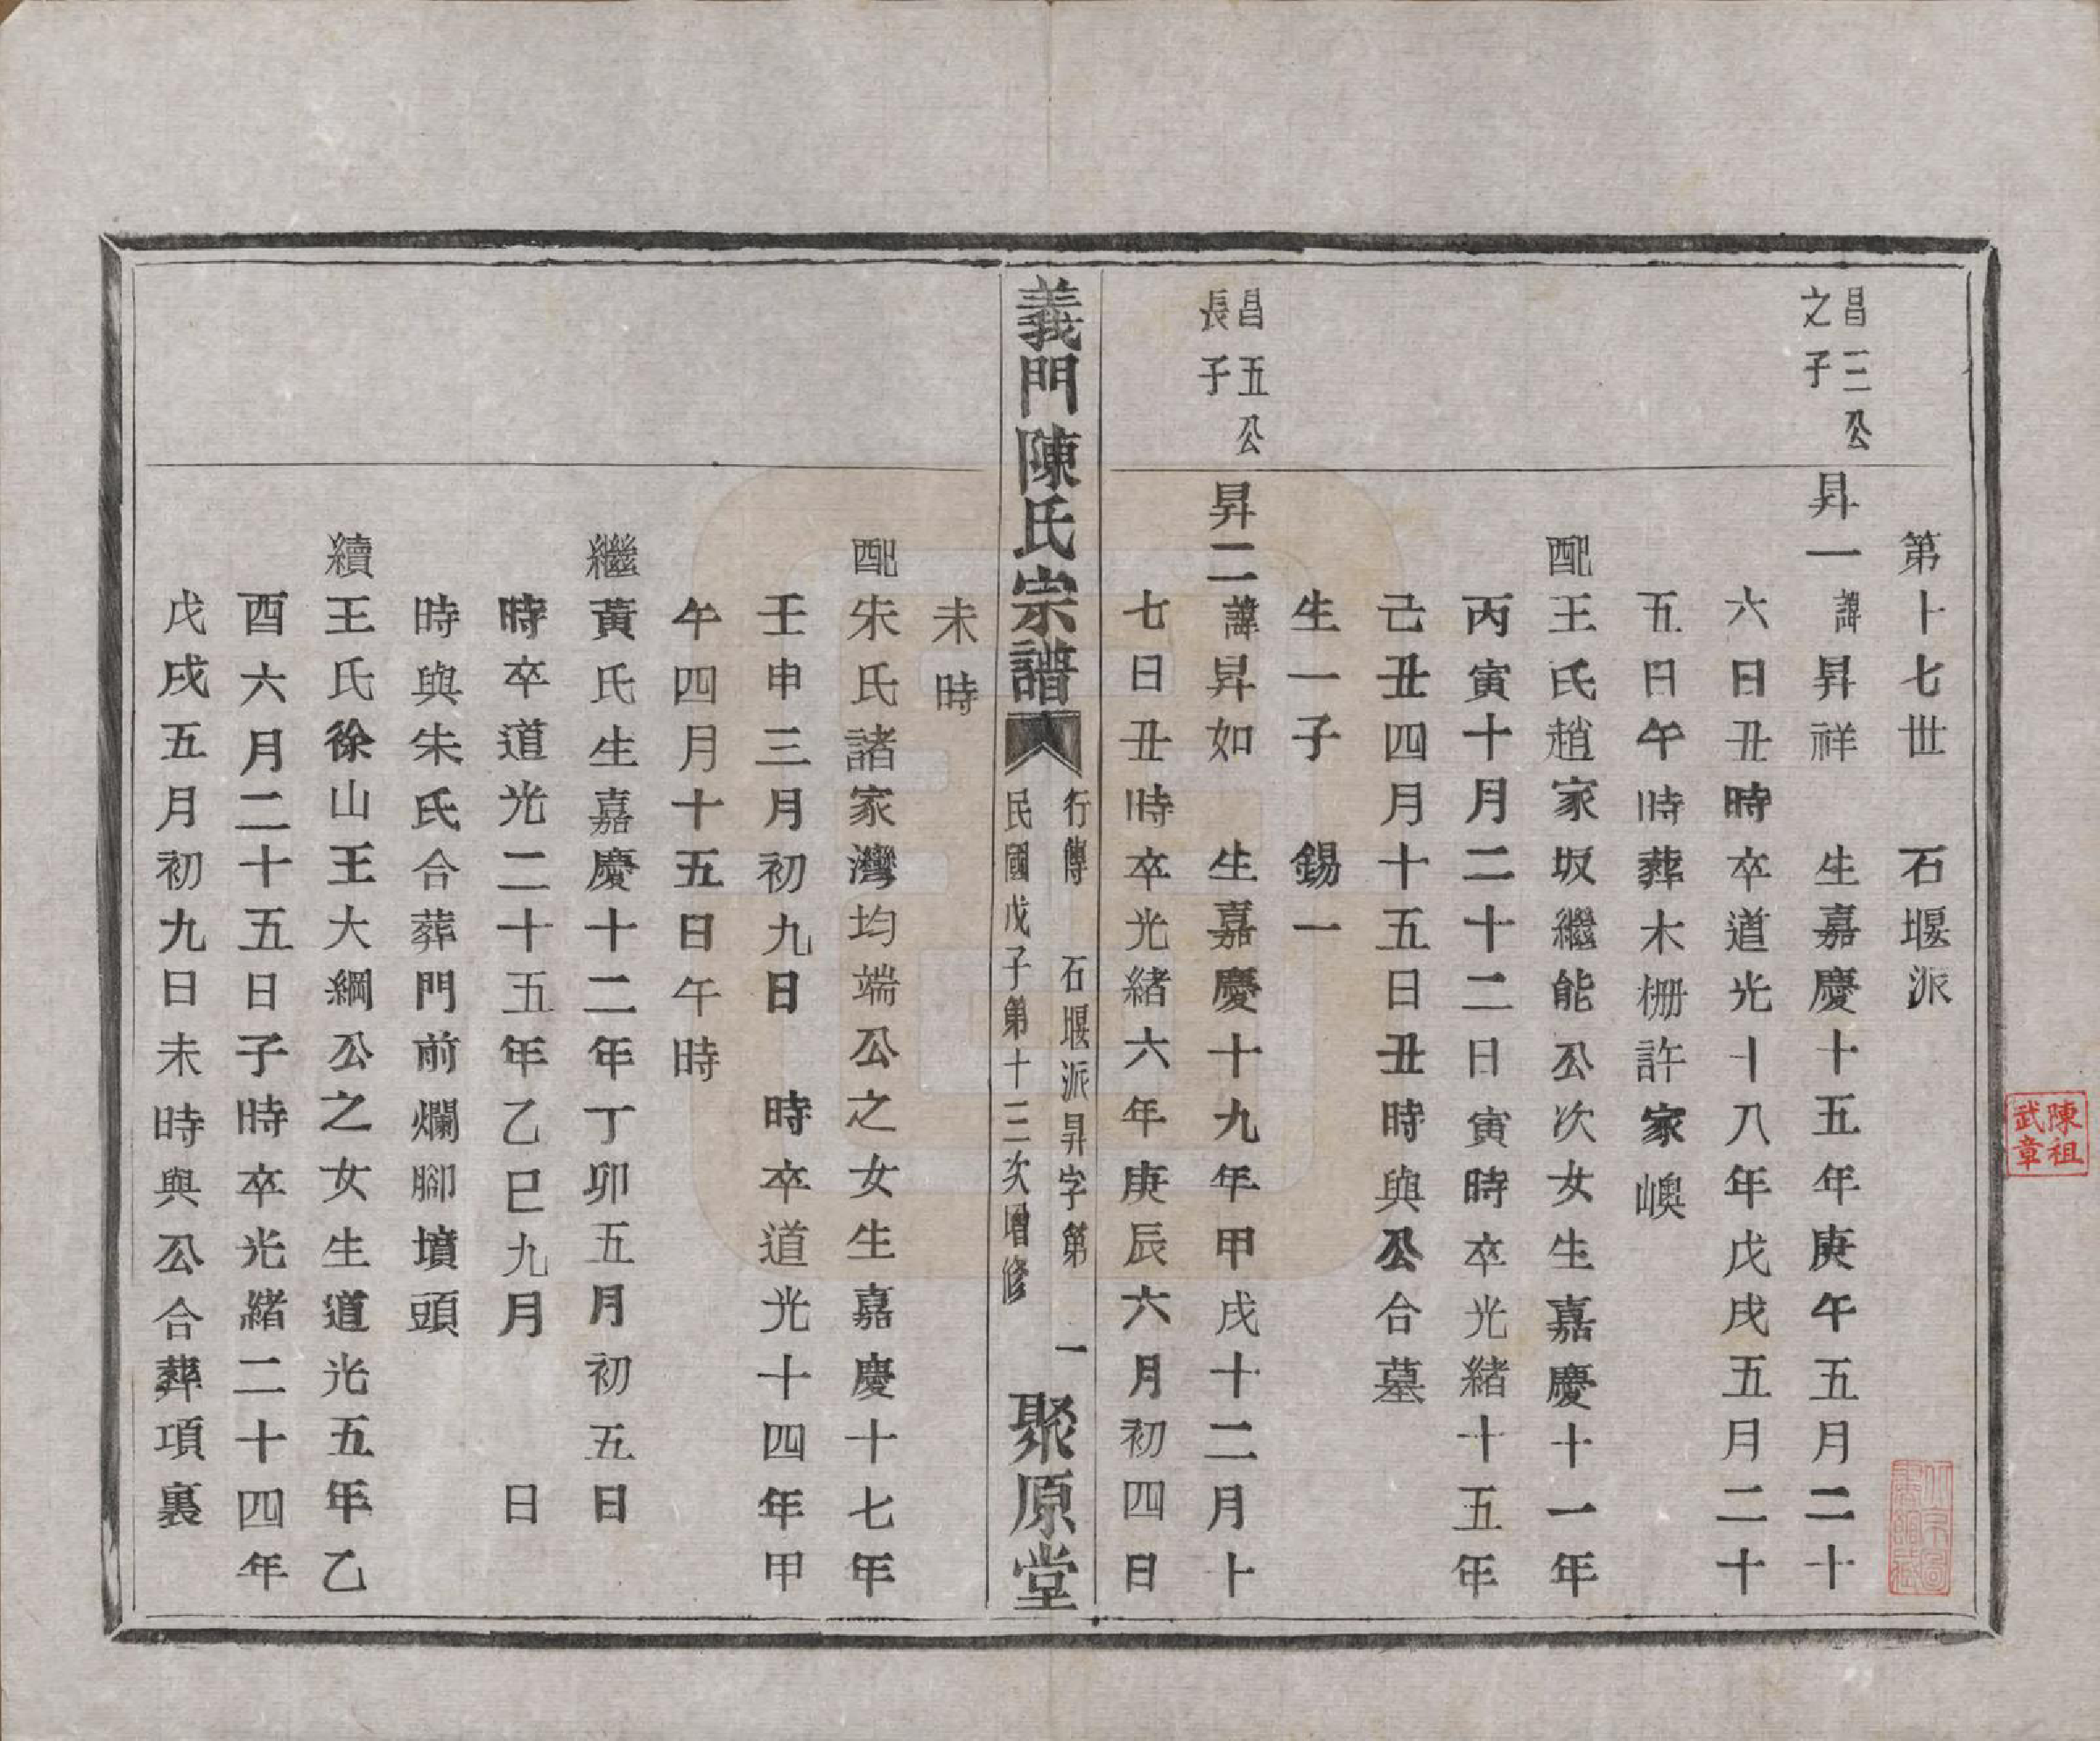 第十七世　石堰派
昌三公
之子
昇一諱昇祥　生嘉慶十五年庚午五月二十
六日丑時卒道光十八年戊戌五月二十
五日午時葬木柵許家嶴
配王氏趙家坂繼能公次女生嘉慶十一年
丙寅十月二十二日寅時卒光緒十五年
己丑四月十五日丑時與公合墓
生一子　錫一
昌五公
長子
昇二諱昇如　生嘉慶十九年甲戌十二月十
七日丑時卒光緒六年庚辰六月初四日
義門陳氏宗譜
行傳　石堰派昇字第　一
民國戊子第十三次增修
聚原堂
未時
配朱氏諸家灣均端公之女生嘉慶十七年
壬申三月初九日　時卒道光十四年甲
午四月十五日午時
繼黃氏生嘉慶十二年丁卯五月初五日
時卒道光二十五年乙巳九月　　日
時與朱氏合葬門前爛腳墳頭
續王氏徐山王大綱公之女生道光五年乙
酉六月二十五日子時卒光緒二十四年
戊戌五月初九日未時與公合葬項裏
陳祖
武章